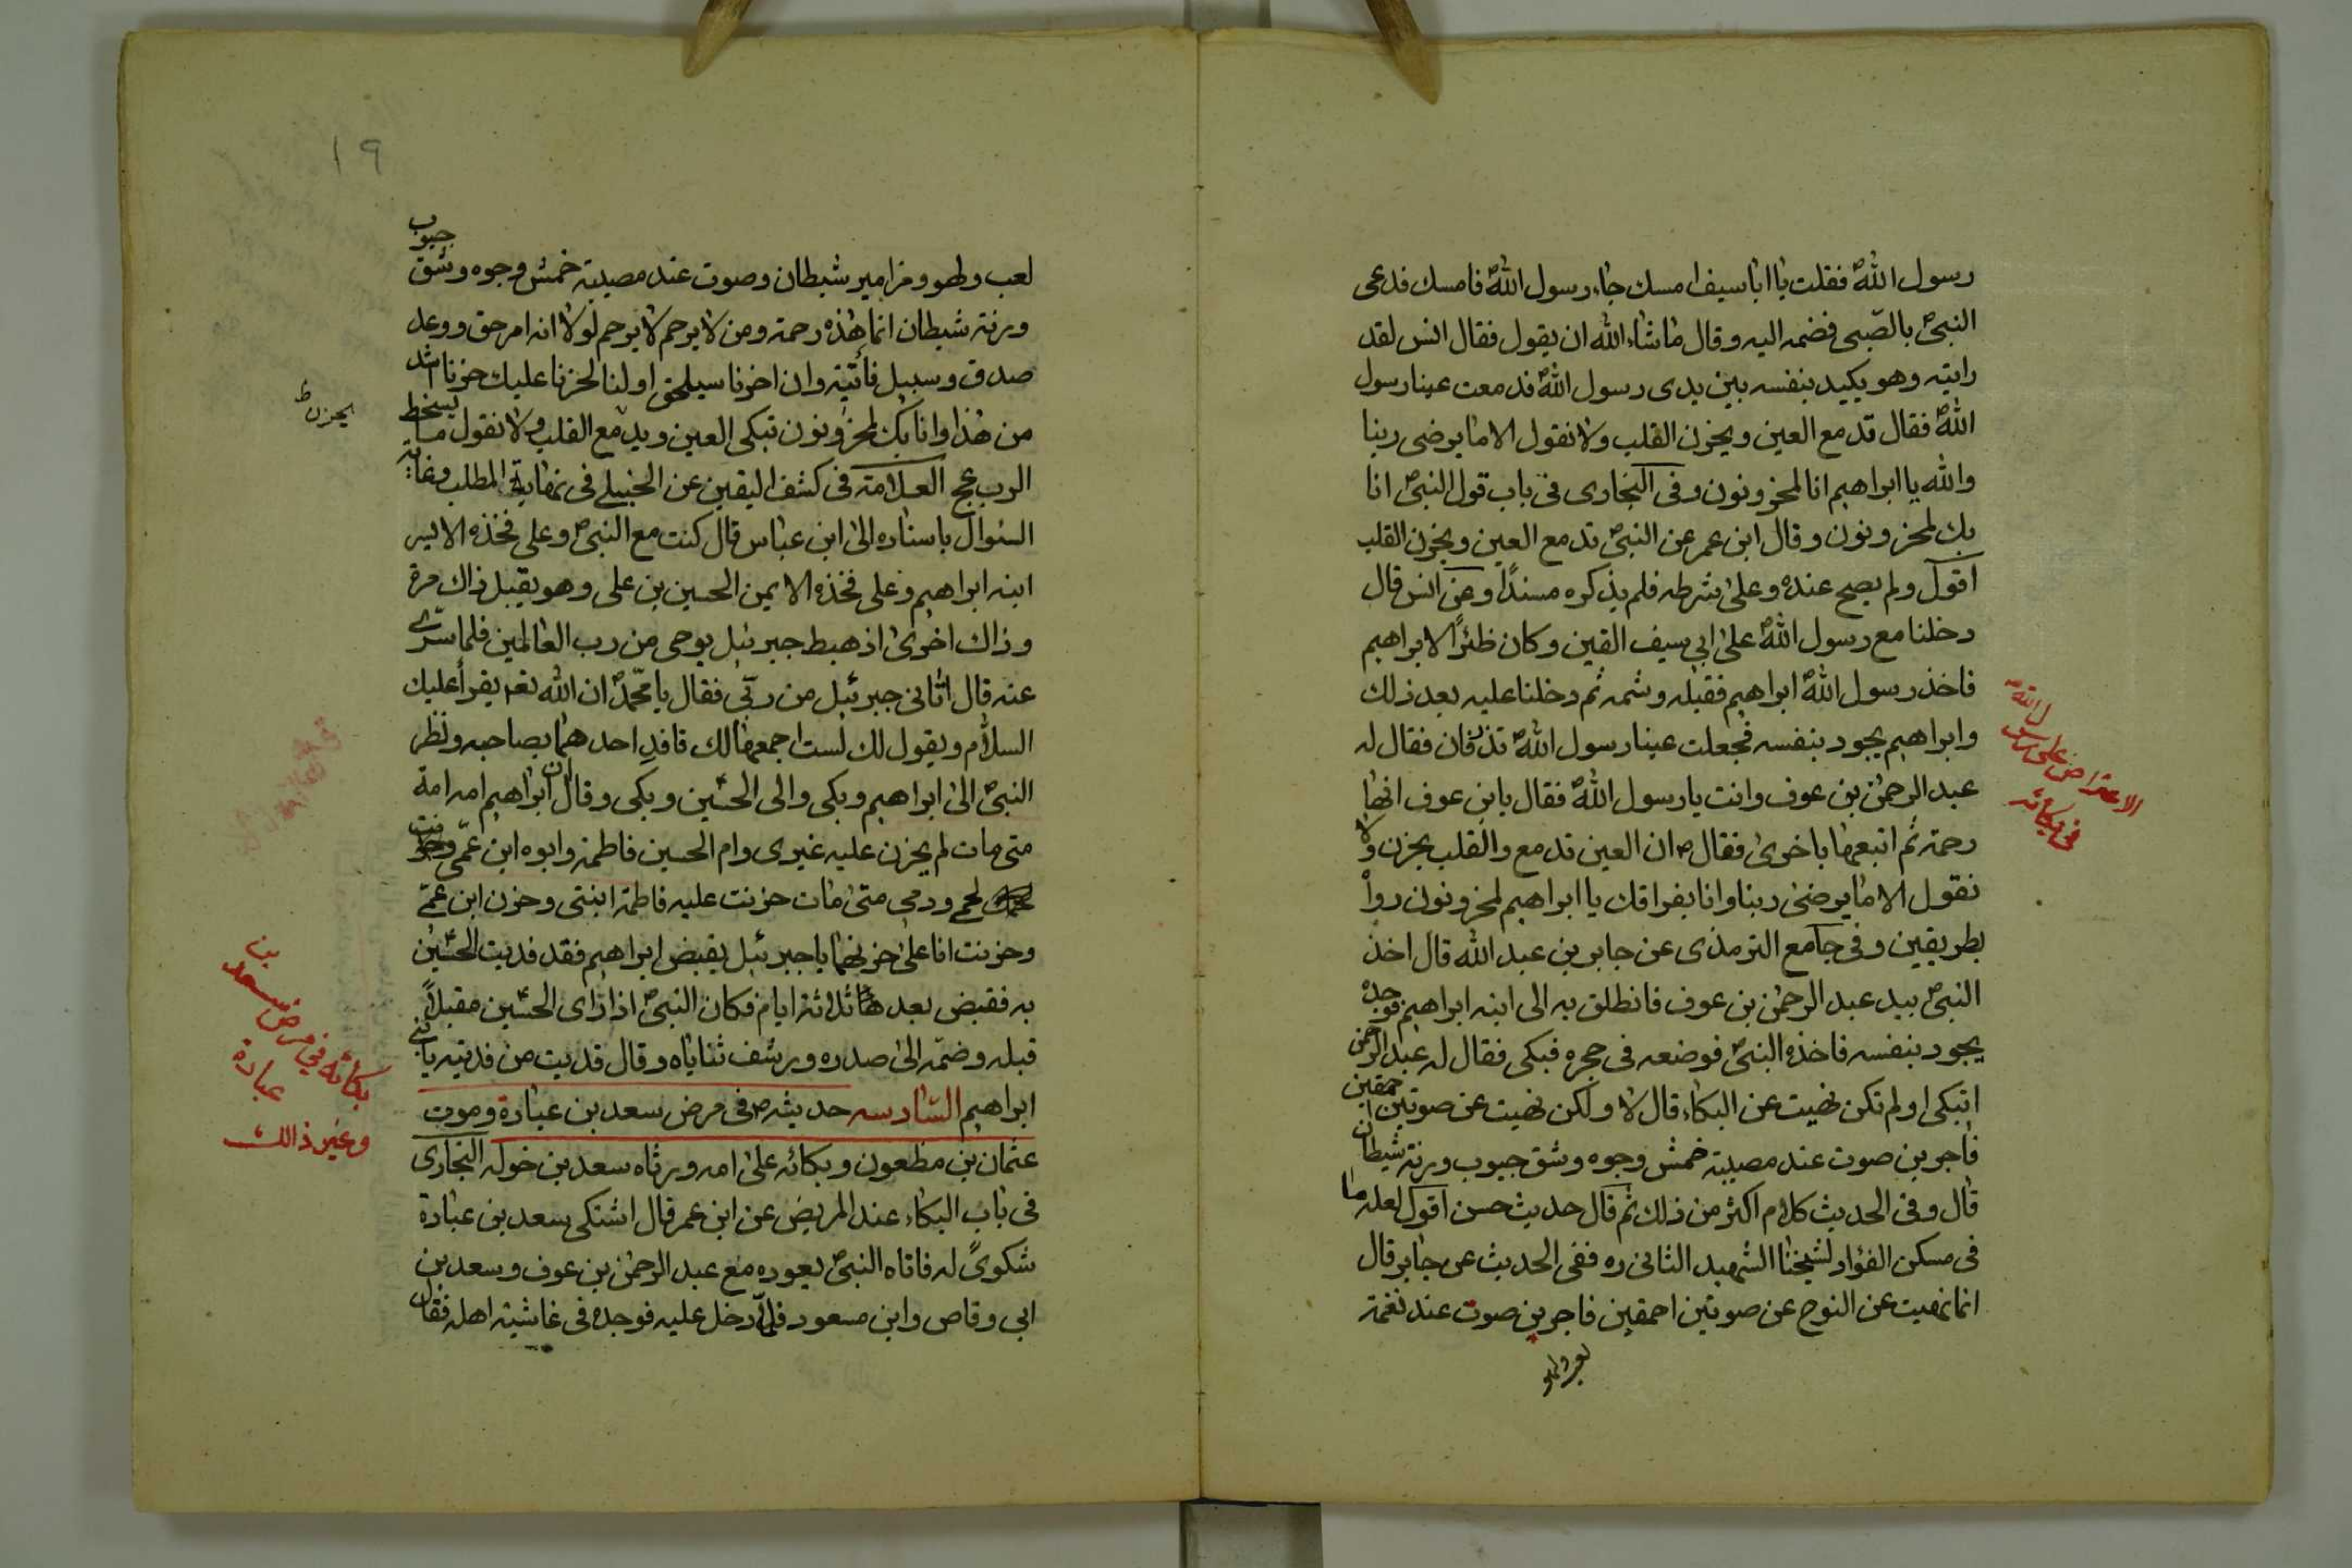 رسول اللهؐ فقلت يا ابا سيف امسك جاء رسول اللهؐ فامسك فدعى
النبىؐ بالصّبى فضمه اليه وقال ما شاء الله ان يقول فقال انس لقد
رايته وهو يكيد بنفسه بين يدى رسول اللهؐ فدمعت عينا رسول
اللهؐ فقال تدمع العين ويحزن القلب ولا نقول الا ما يرضى ربنا
والله يا ابراهيم انا لمحزونون وفى البخارى فى باب قول النبىؐ انا
بك لمحزونون وقال ابن عمر عن النبىؐ تدمع العين ويحزن القلب
اقول ولم يصح عنده وعلى شرطه فلم يذكره مسندًا وعن انس قال
دخلنا مع رسول اللهؐ على ابى سيف القين وكان ظئرًا لابراهيم
فاخذ رسول اللهؐ ابراهيم فقبله وشمه ثم دخلنا عليه بعد ذلك
وابراهيم يجود بنفسه فجعلت عينا رسول اللهؐ تذرفان فقال له
عبد الرحمن بن عوف وانت يا رسول اللهؐ فقال يا بن عوف انها
رحمة ثم اتبعها باخرى فقال ص ان العين تدمع والقلب يحزن ولا
نقول الا ما يرضى ربنا وانا بفراقك يا ابراهيم لمحزونون رواه
بطريقين وفى جامع الترمذى عن جابر بن عبد الله قال اخذ
النبىؐ بيد عبد الرحمن بن عوف فانطلق به الى ابنه ابراهيم فوجده
يجود بنفسه فاخذه النبىؐ فوضعه فى حجره فبكى فقال له عبد الرحمن
اتبكى او لم تكن نهيت عن البكاء قال لا ولكن نهيت عن صوتين احمقين
فاجرين صوت عند مصيبة خمش وجوه وشق جيوب ورنة شيطان
قال وفى الحديث كلام اكثر من ذلك ثم قال حديث حسن اقول لعله ما
فى مسكن الفؤاد لشيخنا الشهيد الثانى ره ففى الحديث عن جابر قال
انما نهيت عن النوح عن صوتين احمقين فاجرين صوت عند نغمة
لعب ولهو
الاعتراض على رسول اللهؐ
فى بكائه
١٩
لعب ولهو ومزامير شيطان وصوت عند مصيبة خمش وجوه وشق جيوب
ورنة شيطان انما هذه رحمة ومن لا يرحم لا يرحم لولا انه امر حق ووعد
صدق وسبيل فأتية وان اخرنا سيلحق اولنا لحزنا عليك حزنا اشد
من هذا وانا بك لمحزونون تبكى العين ويدمع القلب ولا نقول ما يسخط
الرب عج العلامة فى كشف اليقين عن الحنبلى فى نهاية المطلب وغاية
السئوال باسناده الى ابن عباس قال كنت مع النبىؐ وعلى فخذه الايسر
ابنه ابراهيم وعلى فخذه الايمن الحسين بن على وهو يقبل ذاك مرة
وذاك اخرى اذ هبط جبرئيل بوحى من رب العالمين فلما سرّى
عنه قال اتانى جبرئيل من ربّى فقال يا محمّدؐ ان الله تعم يقرأ عليك
السلام ويقول لك لست اجمعهما لك فافد احدهما بصاحبه ونظر
النبىؐ الى ابراهيم وبكى والى الحسينؑ وبكى وقال ان ابراهيم امه امة
متى مات لم يحزن عليه غيرى وام الحسين فاطمة وابوه ابن عمّى
لحمى ودمى متى مات حزنت عليه فاطمة ابنتى وحزن ابن عمّى
وحزنت انا على حزنهما يا جبرئيل يقبض ابراهيم فقد فديت الحسينؑ
به فقبض بعد ثلاثة ايام فكان النبىؐ اذا رأى الحسينؑ مقبلاً
قبله وضمّه الى صدره ورشف ثناياه وقال فديت من فديته يا بنى
ابراهيم السّادسه حديثه ص فى مرض سعد بن عبادة وموت
عثمان بن مظعون وبكائه على امه ورثاه سعد بن خوله البخارى
فى باب البكاء عند المريض عن ابن عمر قال اشتكى سعد بن عبادة
شكوىً له فاتاه النبىؐ يعوده مع عبد الرحمن بن عوف وسعد بن
ابى وقاص وابن مسعود فلمّا دخل عليه فوجده فى غاشية اهله فقال
يحزن ظ
بكائه فى مرض سعد بن
عبادة
وغير ذالك